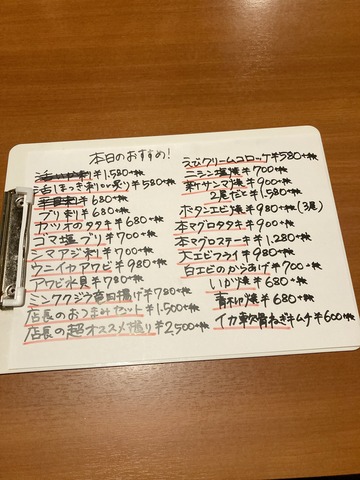 本日のおすすめ！
活いか刺 ¥1,580+税
活ほっき刺or炙り ¥580+税
¥680+税
ブリ刺 ¥680+税
カツオのタタキ ¥680+税
ゴマ塩ブリ ¥700+税
シマアジ刺 ¥700+税
ウニイカアワビ ¥980+税
アワビ水貝 ¥780+税
ミンククジラ竜田揚げ ¥780+税
店長のおつまみセット ¥1,500+税
店長の超オススメ握り ¥2,500+税
えびクリームコロッケ ¥580+税
ニシン塩焼 ¥700+税
新サンマ焼 ¥900+税
2尾だと ¥1,580+税
ボタンエビ焼 ¥980+税(3尾)
本マグロタタキ ¥900+税
本マグロステーキ ¥1,280+税
大エビフライ ¥980+税
白エビのからあげ ¥700+税
いか焼 ¥680+税
青柳焼 ¥680+税
イカ軟骨ねぎキムチ ¥600+税